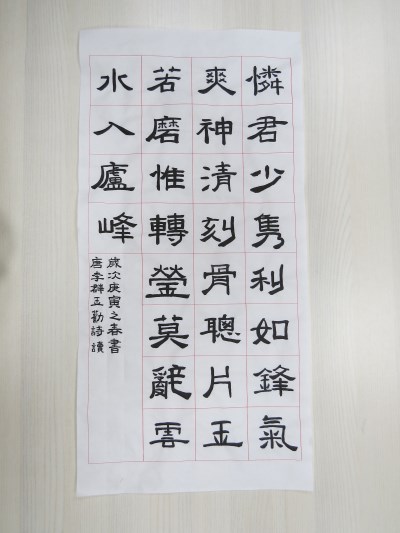 憐君少隽利如鋒氣
爽神清刻骨聰片玉
若磨惟轉瑩莫辭雲
水入廬峰
歲次庚寅之春書
唐李群玉勸詩讀